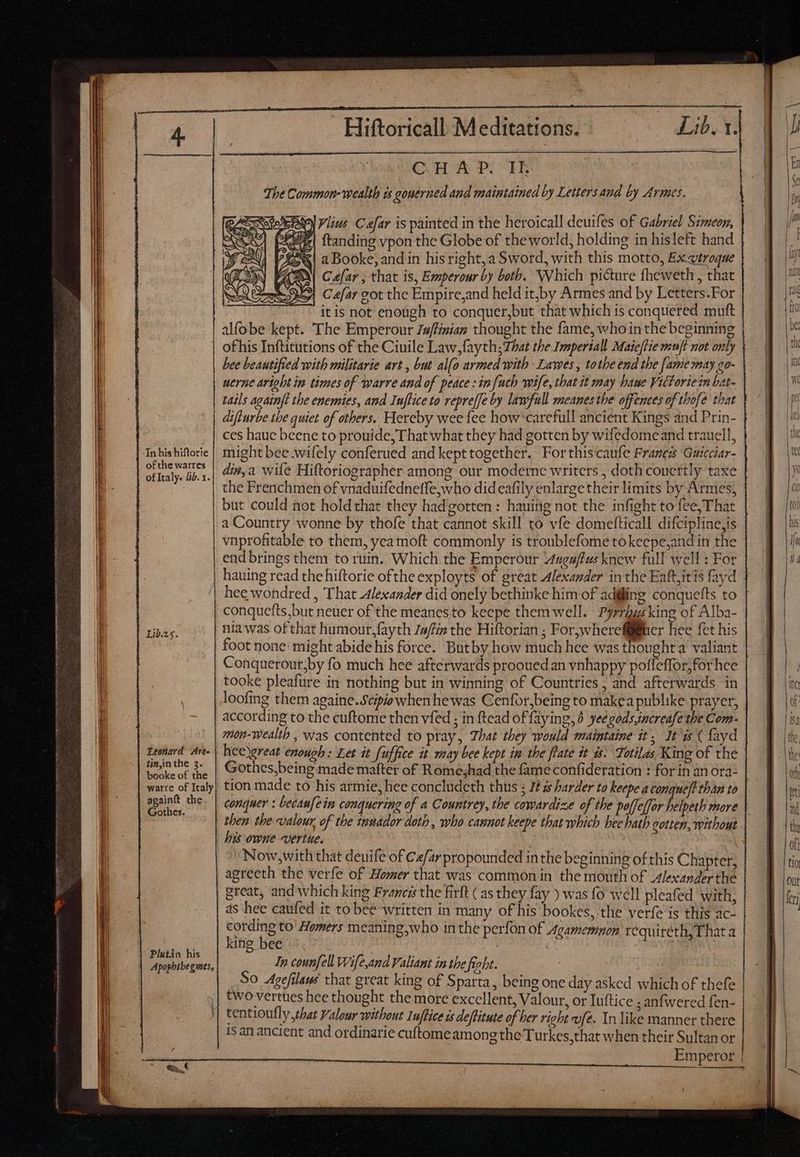 4
Hiſtoricall Meditations.
Lib. 1.
CHAP. II.
The Common-wealth is gouerned and maintained by Letters and by Armes.
IVlius Cæſar is painted in the heroicall deuiſes of Gabriel Simeon,
ſtanding vpon the Globe of the world, holding in his left hand
a Booke, and in his right, a Sword, with this motto, Ex vtroque
Cæſar, that is, Emperour by both. Which picture ſheweth, that
Cæſar got the Empire, and held it, by Armes and by Letters. For
it is not enough to conquer, but that which is conquered muſt
alſo be kept. The Emperour Iuſtinian thought the ſame, who in the beginning
of his Inſtitutions of the Ciuile Law, ſayth; That the Imperiall Maieſtie muſt not only
bee beautified with militarie art, but alſo armed with Lawes, to the end the ſame may go-
uerne aright in times of warre and of peace: in ſuch wiſe, that it may haue Victorie in bat-
tails againſt the enemies, and Iuſtice to repreſſe by lawfull meanes the offences of thoſe that
diſturbe the quiet of others. Hereby wee ſee how carefull ancient Kings and Prin-
ces haue beene to prouide, That what they had gotten by wiſedome and trauell,
might bee wiſely conſerued and kept together. For this cauſe Francis Guicciar-
din, a wiſe Hiſtoriographer among our moderne writers, doth couertly taxe
the Frenchmen of vnaduiſedneſſe, who did eaſily enlarge their limits by Armes,
but could not hold that they had gotten: hauing not the inſight to ſee, That
a Country wonne by thoſe that cannot skill to vſe domeſticall diſcipline, is
vnprofitable to them, yea moſt commonly is troubleſome to keepe, and in the
end brings them to ruin. Which the Emperour Auguſtus knew full well: For
hauing read the hiſtorie of the exployts of great Alexander in the Eaſt, it is ſayd
hee wondred, That Alexander did onely bethinke him of adding conqueſts to
conqueſts, but neuer of the meanes to keepe them well. Pyrrhus king of Alba-
nia was of that humour, ſayth Iuſtin the Hiſtorian; For, whereſoeuer hee ſet his
foot none might abide his force. But by how much hee was thought a valiant
Conquerour, by ſo much hee afterwards prooued an vnhappy poſſeſſor, for hee
tooke pleaſure in nothing but in winning of Countries, and afterwards in
looſing them againe. Scipio when he was Cenſor, being to make a publike prayer,
according to the cuſtome then vſed; in ſtead of ſaying, ô yee gods, increaſe the Com-
mon-wealth, was contented to pray, That they would maintaine it; It is (ſayd
hee) great enough: Let it ſuffice it may bee kept in the ſtate it is. Totilas King of the
Gothes, being made maſter of Rome, had the ſame conſideration: for in an ora-
tion made to his armie, hee concludeth thus; It is harder to keepe a conqueſt than to
conquer: becauſe in conquering of a Countrey, the cowardize of the poſſeſſor helpeth more
then the valour of the inuador doth, who cannot keepe that which hee hath gotten, without
his owne vertue.
Now, with that deuiſe of Cæſar propounded in the beginning of this Chapter,
agreeth the verſe of Homer that was common in the mouth of Alexander the
great, and which king Francis the firſt (as they ſay) was ſo well pleaſed with,
as hee cauſed it to bee written in many of his bookes, the verſe is this ac-
cording to Homers meaning, who in the perſon of Agamemnon requireth, That a
king bee
In counſell Wiſe, and Valiant in the fight.
So Ageſilaus that great king of Sparta, being one day asked which of theſe
two vertues hee thought the more excellent, Valour, or Iuſtice; anſwered ſen-
tentiouſly, that Valour without Iuſtice is deſtitute of her right vſe. In like manner there
is an ancient and ordinarie cuſtome among the Turkes, that when their Sultan or
Emperor
In his hiſtorie
of the warres
of Italy. lib. 1.
Lib. 25.
Leonard Are-
tin, in the 3.
booke of the
warre of Italy
againſt the
Gothes.
Plut. in his
Apophthegmes,